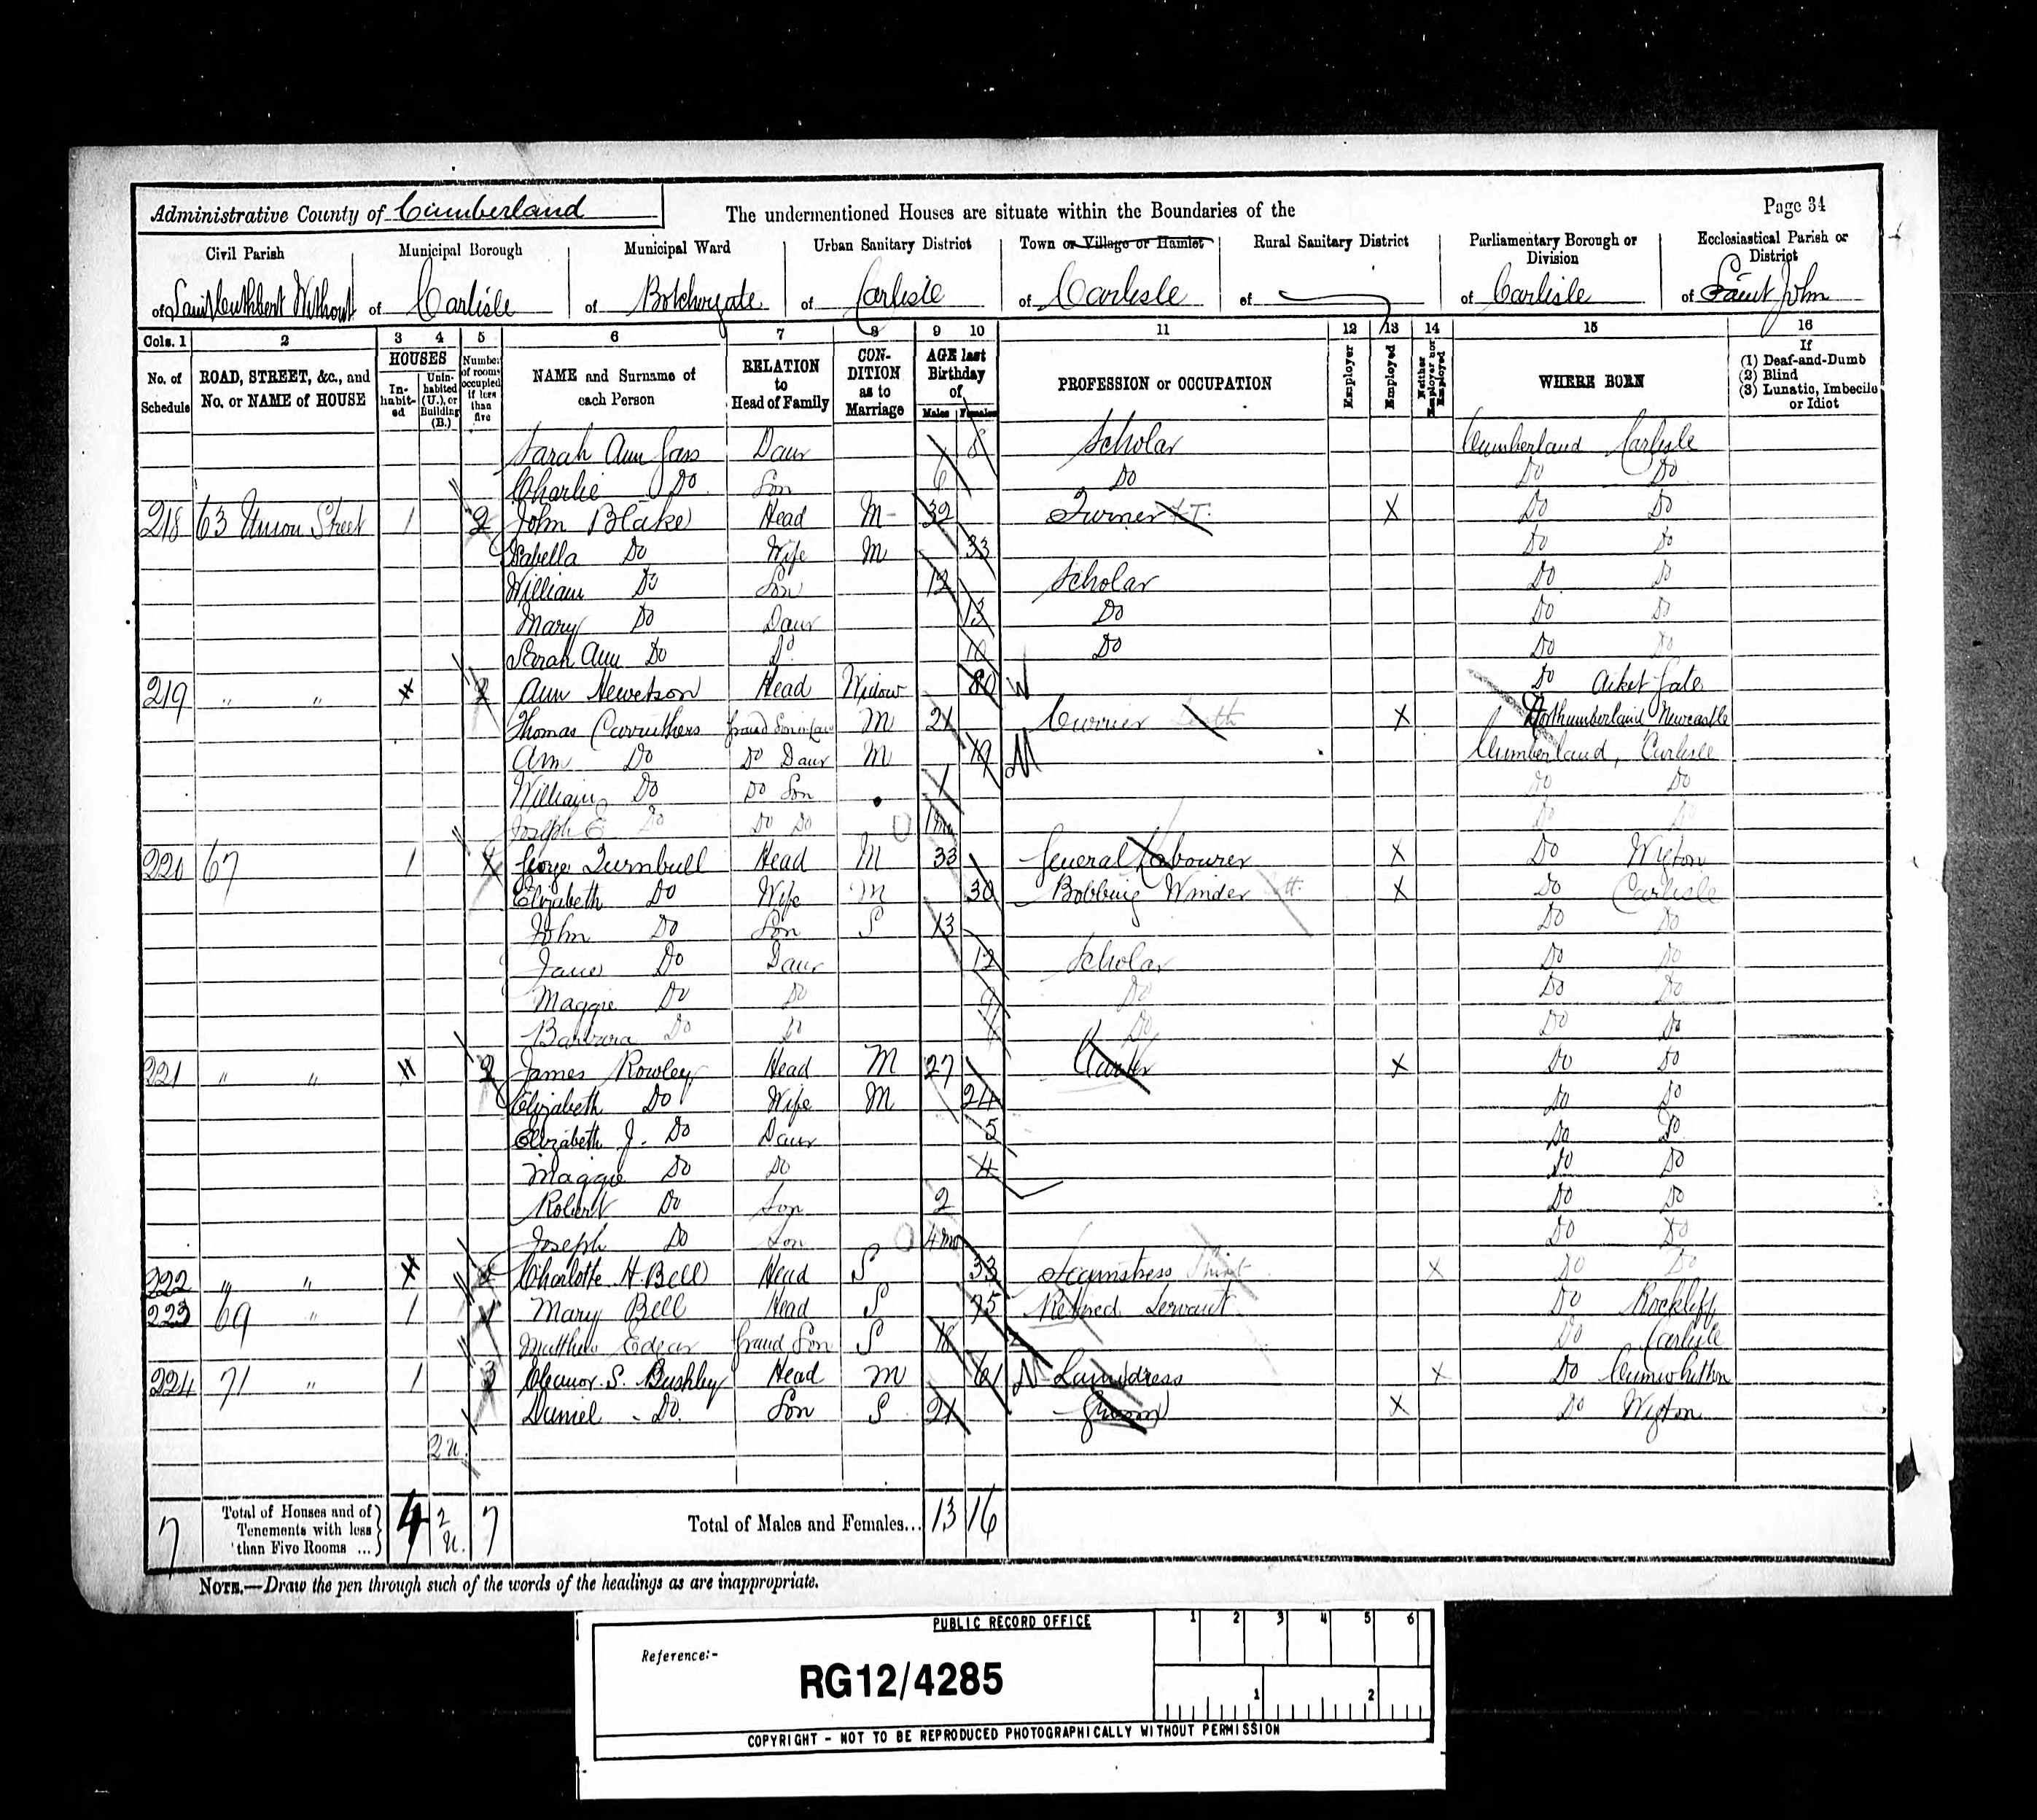 Administrative County of Cumberland
The undermentioned Houses are situate within the Boundaries of the
Page 34
Civil Parish Municipal Borough Municipal Ward Urban Sanitary District Town or Village or Hamlet Rural Sanitary District Parliamentary Borough or Division Ecclesiastical Parish or District
of Saint Cuthbert Without of Carlisle of Botchergate of Carlisle of Carlisle of of Carlisle of Saint John
Cols. 1 2 3 4 5 6 7 8 9 10 11 12 13 14 15 16
No. of Schedule
ROAD, STREET, &c., and No. or NAME of HOUSE
HOUSES
In-habit-ed
Unin-habited (U.), or Building (B.)
Number of rooms occupied if less than five
NAME and Surname of each Person
RELATION to Head of Family
CON-DITION as to Marriage
AGE last Birthday of
Males Females
PROFESSION or OCCUPATION
Employer
Employed
Neither Employer nor Employed
WHERE BORN
If
(1) Deaf-and-Dumb
(2) Blind
(3) Lunatic, Imbecile or Idiot
Sarah Ann Gass Daur 8 Scholar Cumberland Carlisle
Charlie Do Son 6 Do Do Do
218 63 Union Street 1 2 John Blake Head M 32 Turner X Do Do
Isabella Do Wife M 33 Do Do
William Do Son 12 Scholar Do Do
Mary Do Daur 13 Do Do Do
Sarah Ann Do Do 10 Do Do Do
219 " " 2 Ann Hewetson Head Widow 80 W Do Aiket Gate
Thomas Carruthers Grand Son in Law M 21 Currier X Northumberland Newcastle
Ann Do Do Daur M 19 Cumberland, Carlisle
William Do Do Son 1 Do Do
Joseph E Do Do Do 1 mo Do Do
220 67 1 4 George Turnbull Head M 33 General Labourer X Do Wigton
Elizabeth Do Wife M 30 Bobbing Winder X Do Carlisle
John Do Son S 13 Do Do
Jane Do Daur 12 Scholar Do Do
Maggie Do Do 9 Do Do Do
Barbara Do Do Do Do Do
221 " " 2 James Rowley Head M 27 Carter X Do Do
Elizabeth Do Wife M 24 Do Do
Elizabeth J. Do Daur 5 Do Do
Maggie Do Do 4 Do Do
Robert Do Son 2 Do Do
Joseph Do Son 4 mo Do Do
222 " " Charlotte H. Bell Head S 33 Seamstress Shirt X Do Do
223 69 " 1 Mary Bell Head S 75 Retired Servant Do Rockliff
Matthew Edgar Grand Son S 18 Do Carlisle
224 71 " 1 3 Eleanor S. Bushby Head M 61 Laundress X Do Cumwhitton
Daniel Do Son S 21 Groom X Do Wigton
2 u.
7 Total of Houses and of Tenements with less than Five Rooms ... 4 2 u. 7 Total of Males and Females... 13 16
NOTE.—Draw the pen through such of the words of the headings as are inappropriate.
PUBLIC RECORD OFFICE
1 2 3 4 5 6
Reference:-
RG12/4285
1 2
COPYRIGHT - NOT TO BE REPRODUCED PHOTOGRAPHICALLY WITHOUT PERMISSION